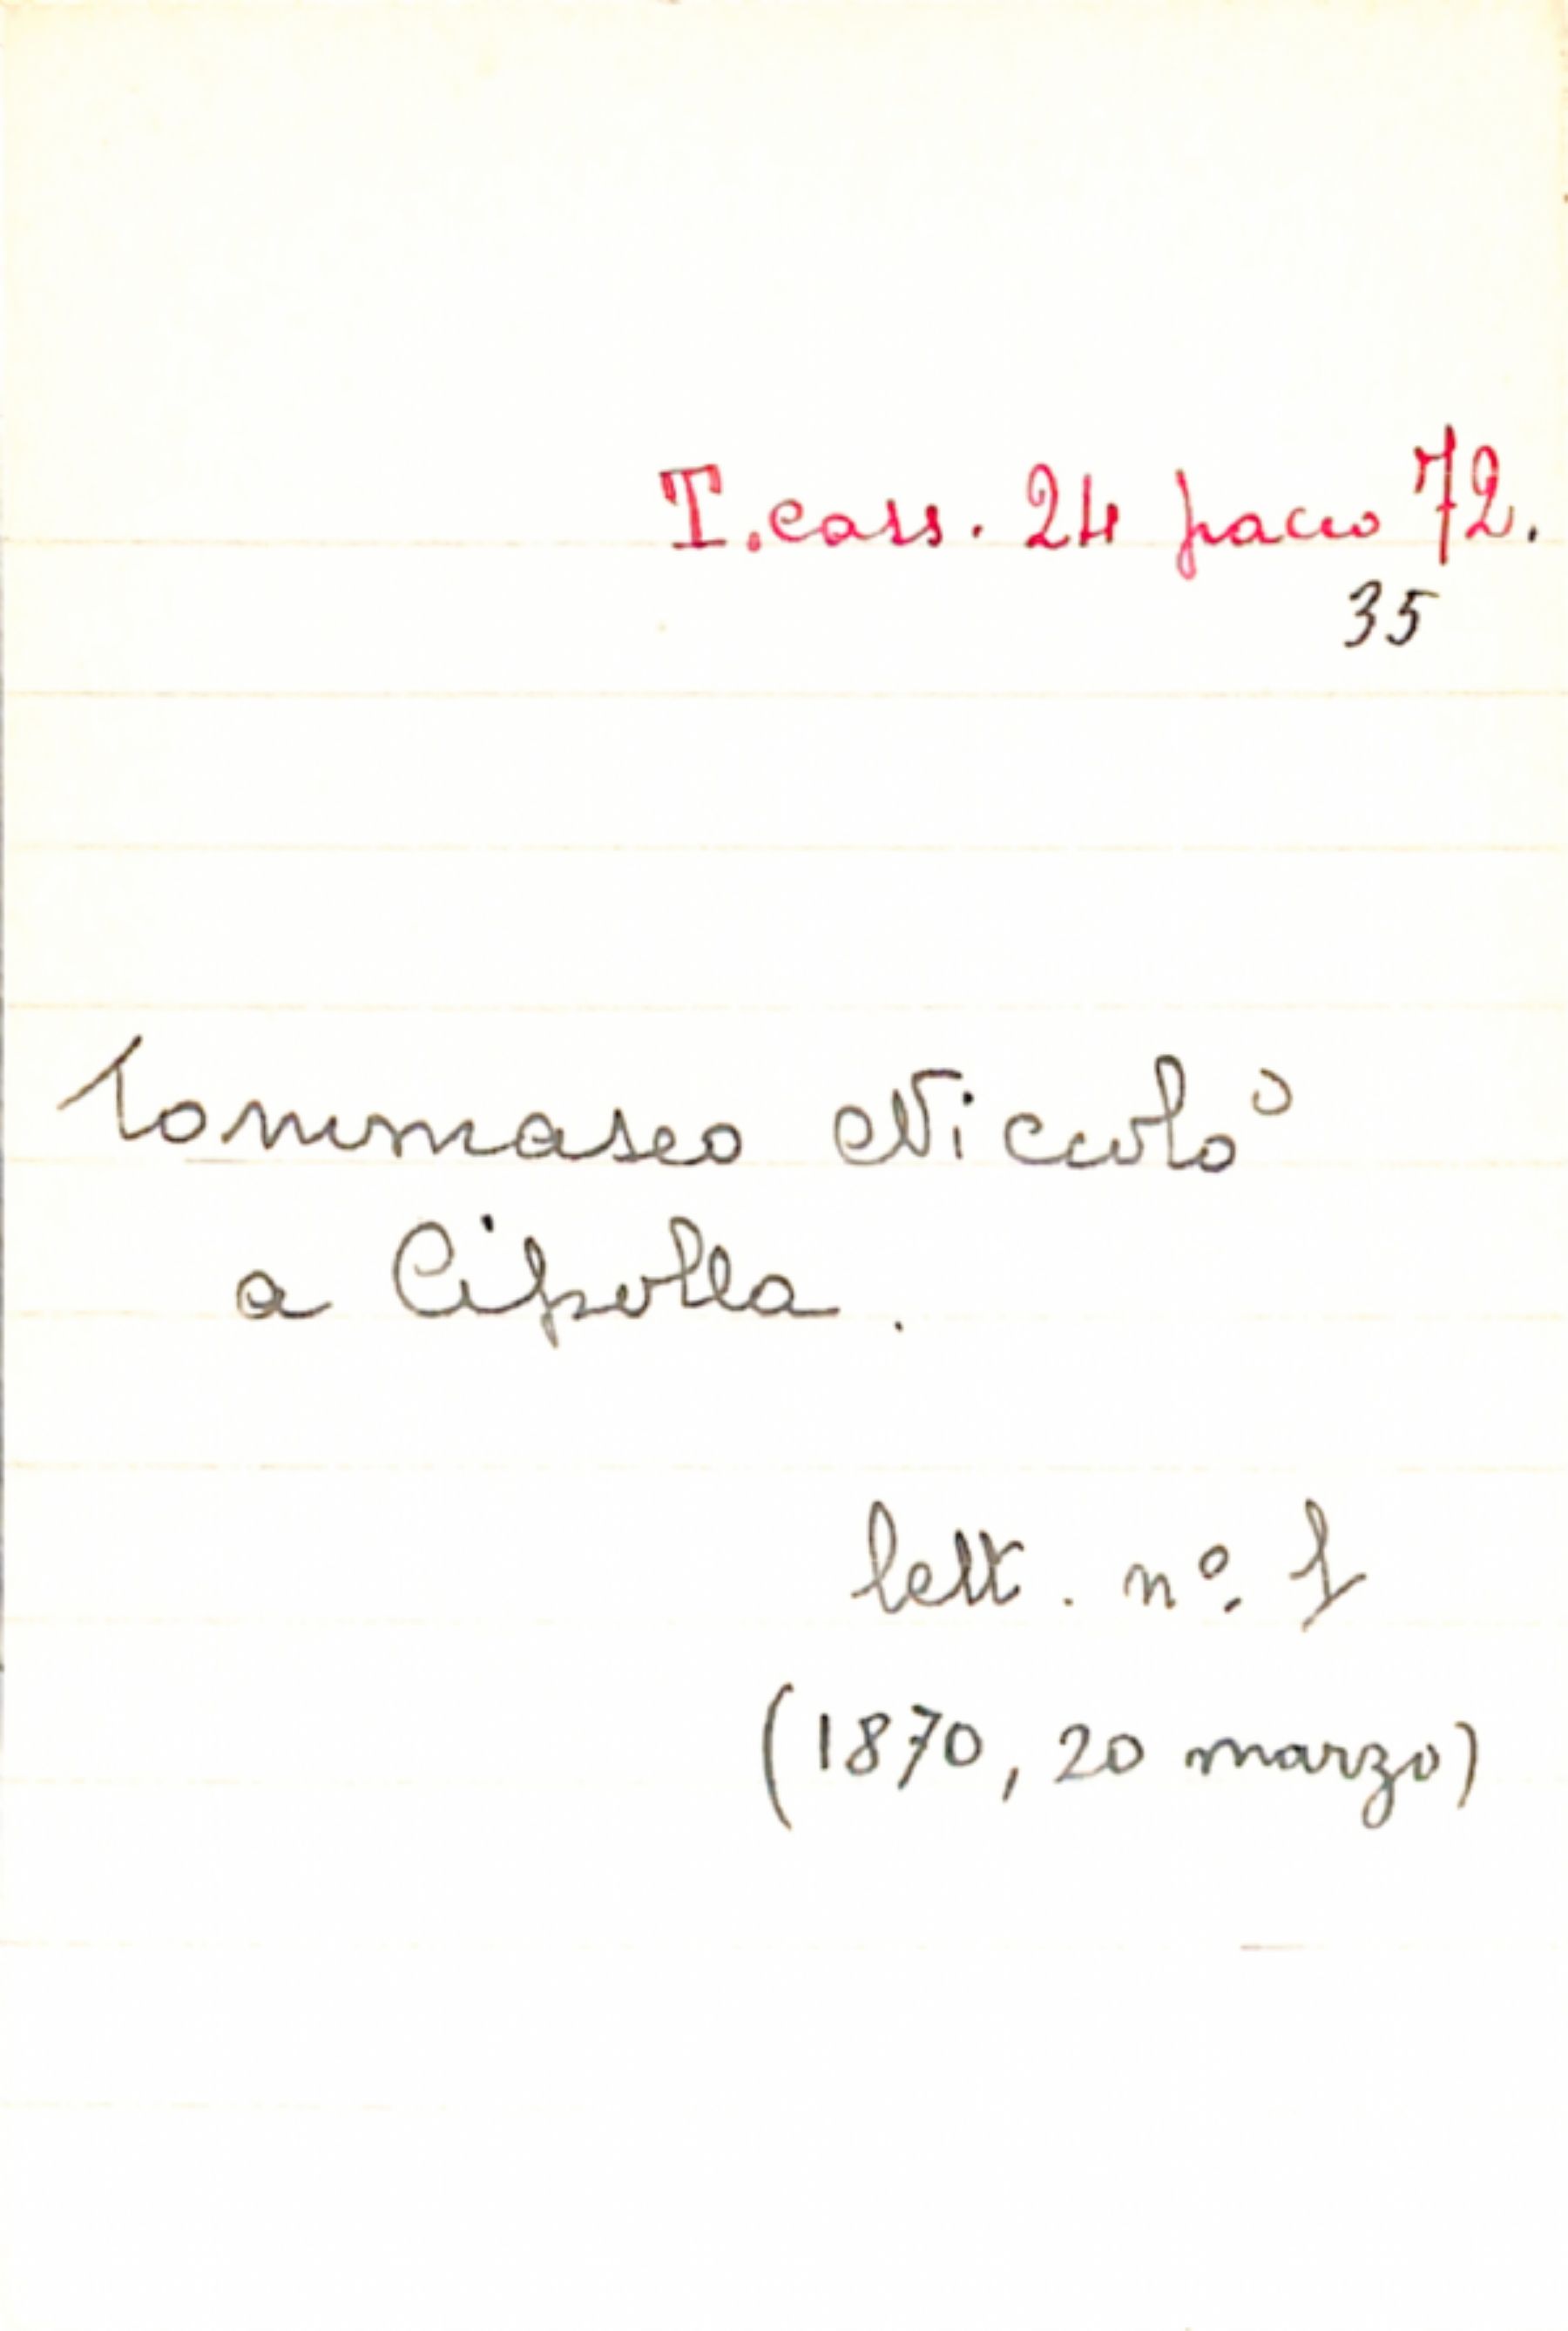 T. cass. 24 pacco 72.
35
Tommaseo Niccolò
a Cipolla.
lett. nº. 1
(1870, 20 marzo)